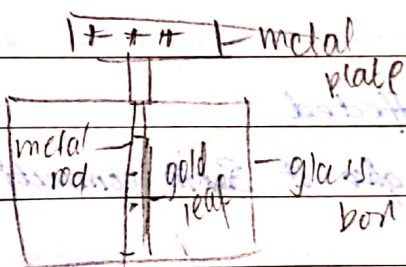 + + ++
metal
plate
metal
rod
gold
leaf
glass
box